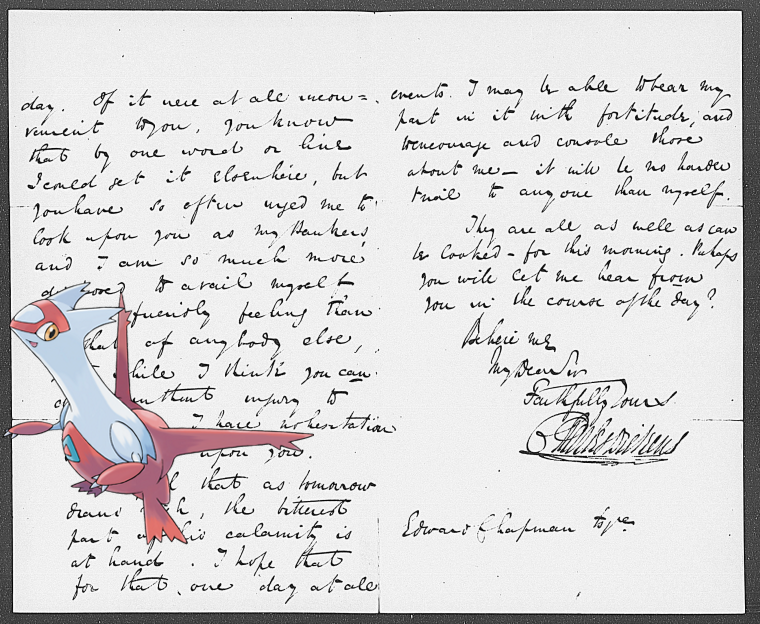 day. If it were at all incon=
venient to you, you know
that by one word or line
I could get it elsewhere, but
you have so often urged me to
look upon you as my Bankers,
and I am so much more
to avail myself
friendly feeling than
that of anybody else,
while I think you can
without injury to
I have no hesitation
upon you.
that as tomorrow
draws the bitterest
part of this calamity is
at hand. I hope that
for that, one day at all
events. I may be able to bear my
part in it with fortitude, and
to encourage and console those
about me – it will be no harder
trial to anyone than myself.
They are all as well as can
be looked – for this morning. Perhaps
you will let me hear from
you in the course of the day?
Believe me
My Dear Sir
Faithfully Yours
Charles Dickens
Edward Chapman Esqre